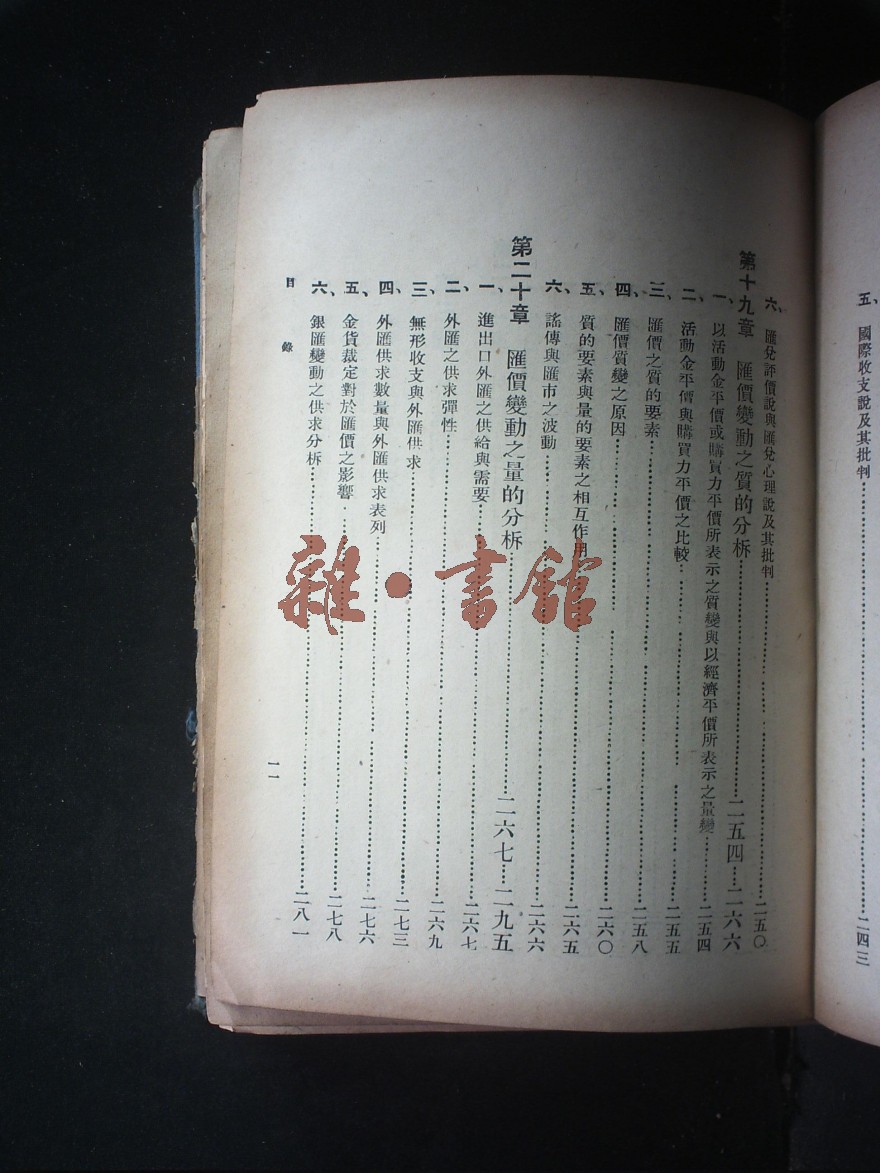 五、國際收支說及其批判……二四三
六、匯兌評價說與匯兌心理說及其批判……二五〇
第十九章 匯價變動之質的分析……二五四……二六六
一、以活動金平價或購買力平價所表示之質變與以經濟平價所表示之量變……二五四
二、活動金平價與購買力平價之比較……二五五
三、匯價之質的要素……二五八
四、匯價質變之原因……二六〇
五、質的要素與量的要素之相互作用……二六五
六、謠傳與匯市之波動……二六六
第二十章 匯價變動之量的分析……二六七……二九五
一、進出口外匯之供給與需要……二六七
二、外匯之供求彈性……二六九
三、無形收支與外匯供求……二七三
四、外匯供求數量與外匯供求表列……二七六
五、金貨裁定對於匯價之影響……二七八
六、銀匯變動之供求分析……二八一
目錄
一一
雜·書館